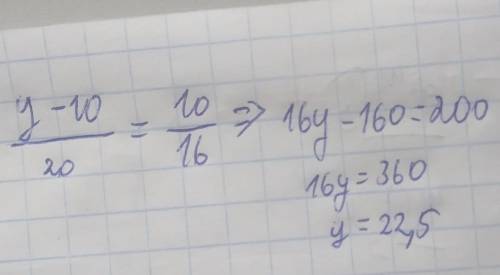 (y-10)/20 = 10/16 => 16y-160=200
16y=360
y=22,5